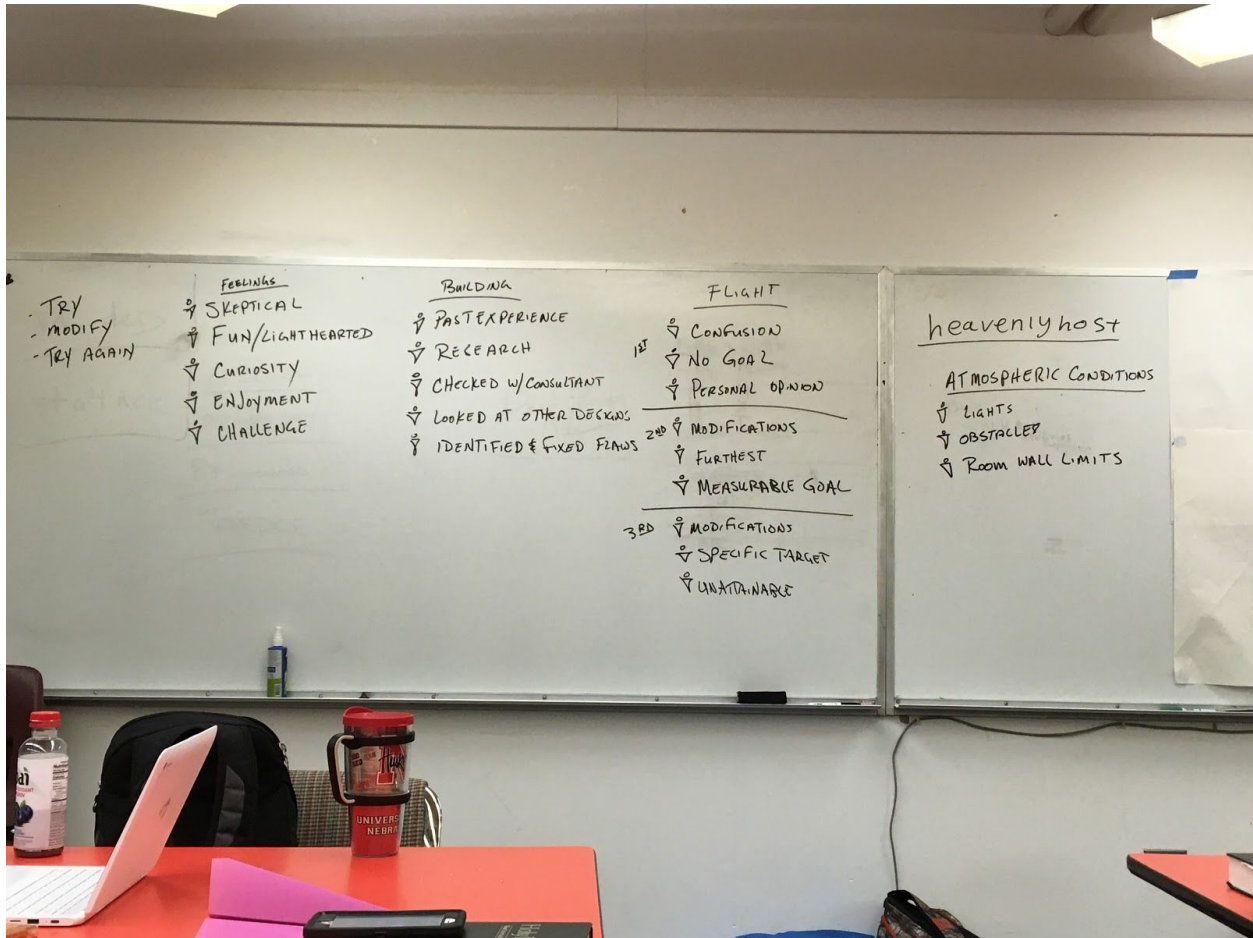 . TRY
- MODIFY
- TRY AGAIN
FEELINGS
SKEPTICAL
FUN/LIGHTHEARTED
CURIOSITY
ENJOYMENT
CHALLENGE
BUILDING
PAST EXPERIENCE
RESEARCH
CHECKED W/CONSULTANT
LOOKED AT OTHER DESIGNS
IDENTIFIED & FIXED FLAWS
FLIGHT
1ST
CONFUSION
NO GOAL
PERSONAL OPINION
2ND MODIFICATIONS
FURTHEST
MEASURABLE GOAL
3RD MODIFICATIONS
SPECIFIC TARGET
UNATTAINABLE
heavenlyhost
ATMOSPHERIC CONDITIONS
LIGHTS
OBSTACLES
ROOM WALL LIMITS
Huskers
UNIVERS
NEBRA